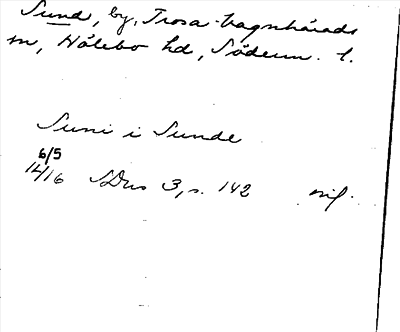 Sund, by, Trosa-Vagnhärads
sn, Hölebo hd, Söderm. l.
Suni i Sunde
6/5
1416 SDns 3, s. 142 orig.